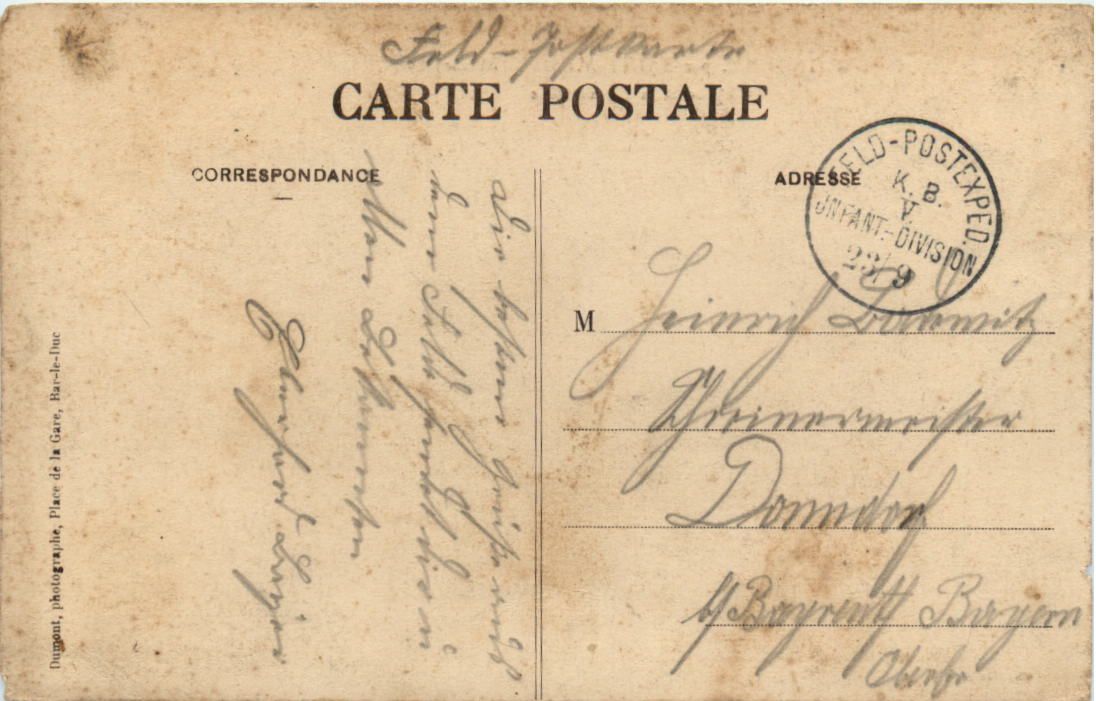 Feld-Postkarte
CARTE POSTALE
CORRESPONDANCE
ADRESSE
FELD-POSTEXPED.
K. B.
V.
INFANT.-DIVISION
23/9
Die besten Grüße aus
dem Feld sendet dir u
allen Bekannten
M Heinrich
Schreinermeister
Donndorf
b/ Bayreuth Bayern
Oberfr
Dumont, photographe, Place de la Gare, Bar-le-Duc